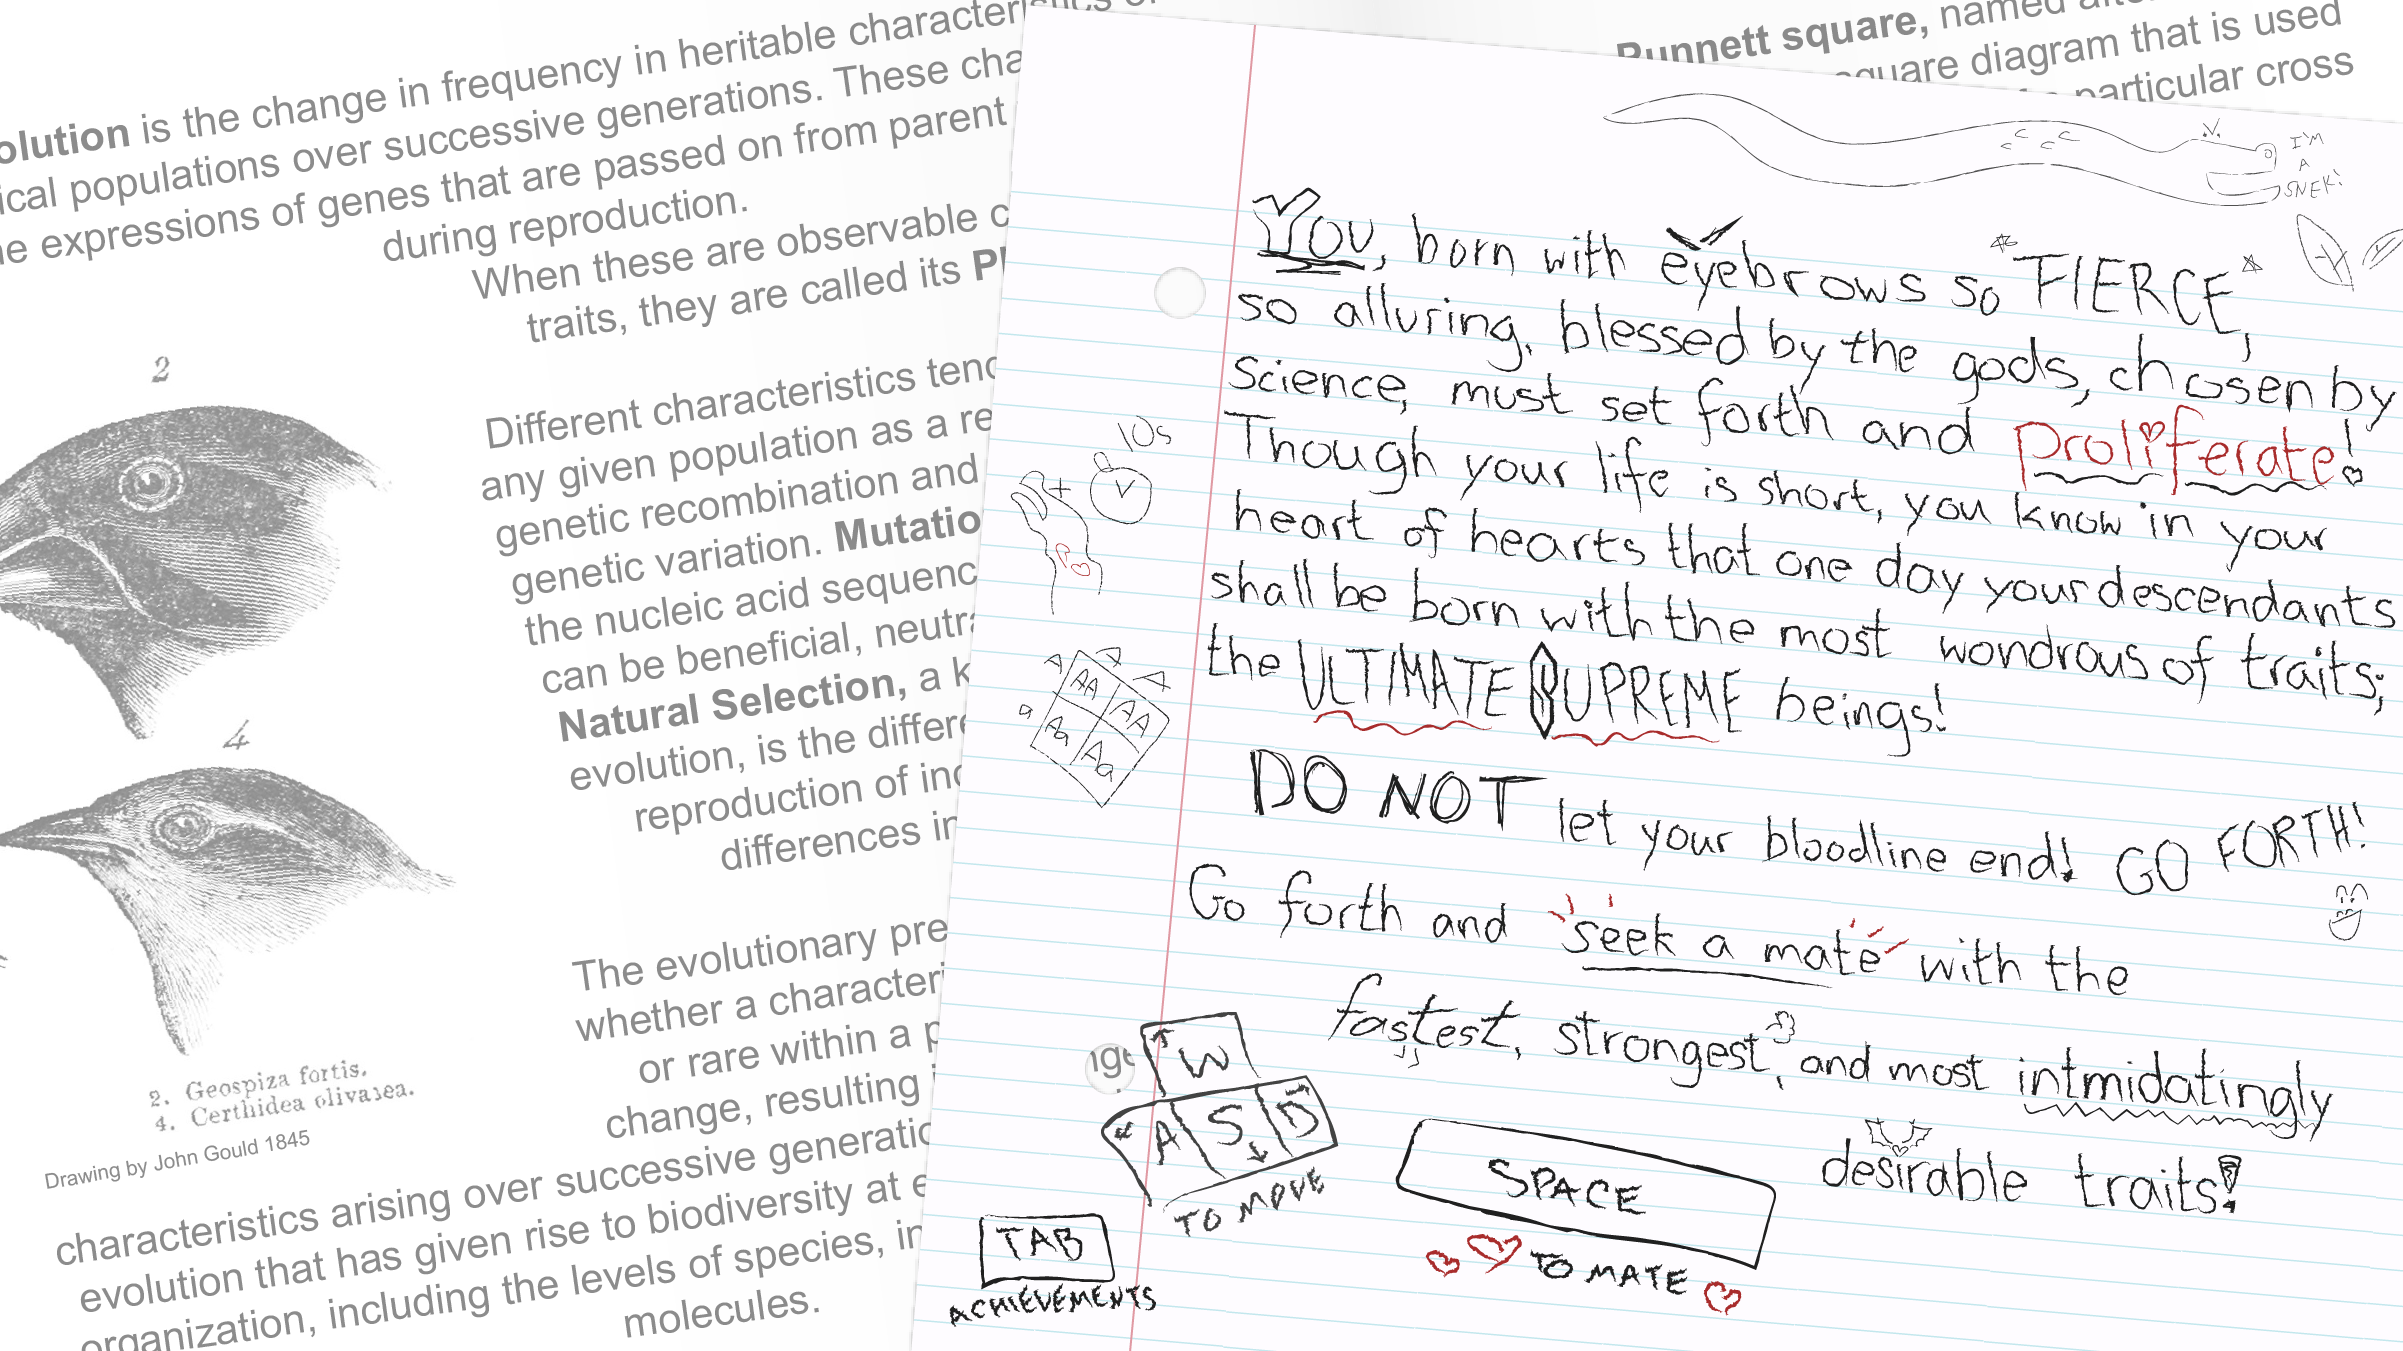 olution is the change in frequency in heritable
ical populations over successive generations. These
e expressions of genes that are passed on from parent
during reproduction.
When these are observable
traits, they are called its
2
Different characteristics
any given population as a
genetic recombination and
genetic variation. Mutatio
the nucleic acid
can be beneficial,
Natural Selection, a
evolution, is the
reproduction of
differences
4
The evolutionary
whether a
or rare within a
change, resulting
2. Geospiza fortis.
4. Certhidea olivacea.
Drawing by John Gould 1845
characteristics arising over successive
evolution that has given rise to biodiversity at
organization, including the levels of species,
molecules.
Punnett square, named
square diagram that is used
particular cross
I'M
A
SNEK!
YOU, born with eyebrows so *FIERCE*,
so alluring, blessed by the gods, chosen by
science, must set forth and proliferate!
Though your life is short, you know in your
heart of hearts that one day your descendants
shall be born with the most wondrous of traits;
the ULTIMATE SUPREME beings!
DO NOT let your bloodline end! GO FORTH!
Go forth and seek a mate with the
fastest, strongest, and most intmidatingly
desirable traits!
10s
+
A A
A AA AA
a Aa Aa
nge
W
A S D
TO MOVE
SPACE
TO MATE
TAB
ACHIEVEMENTS